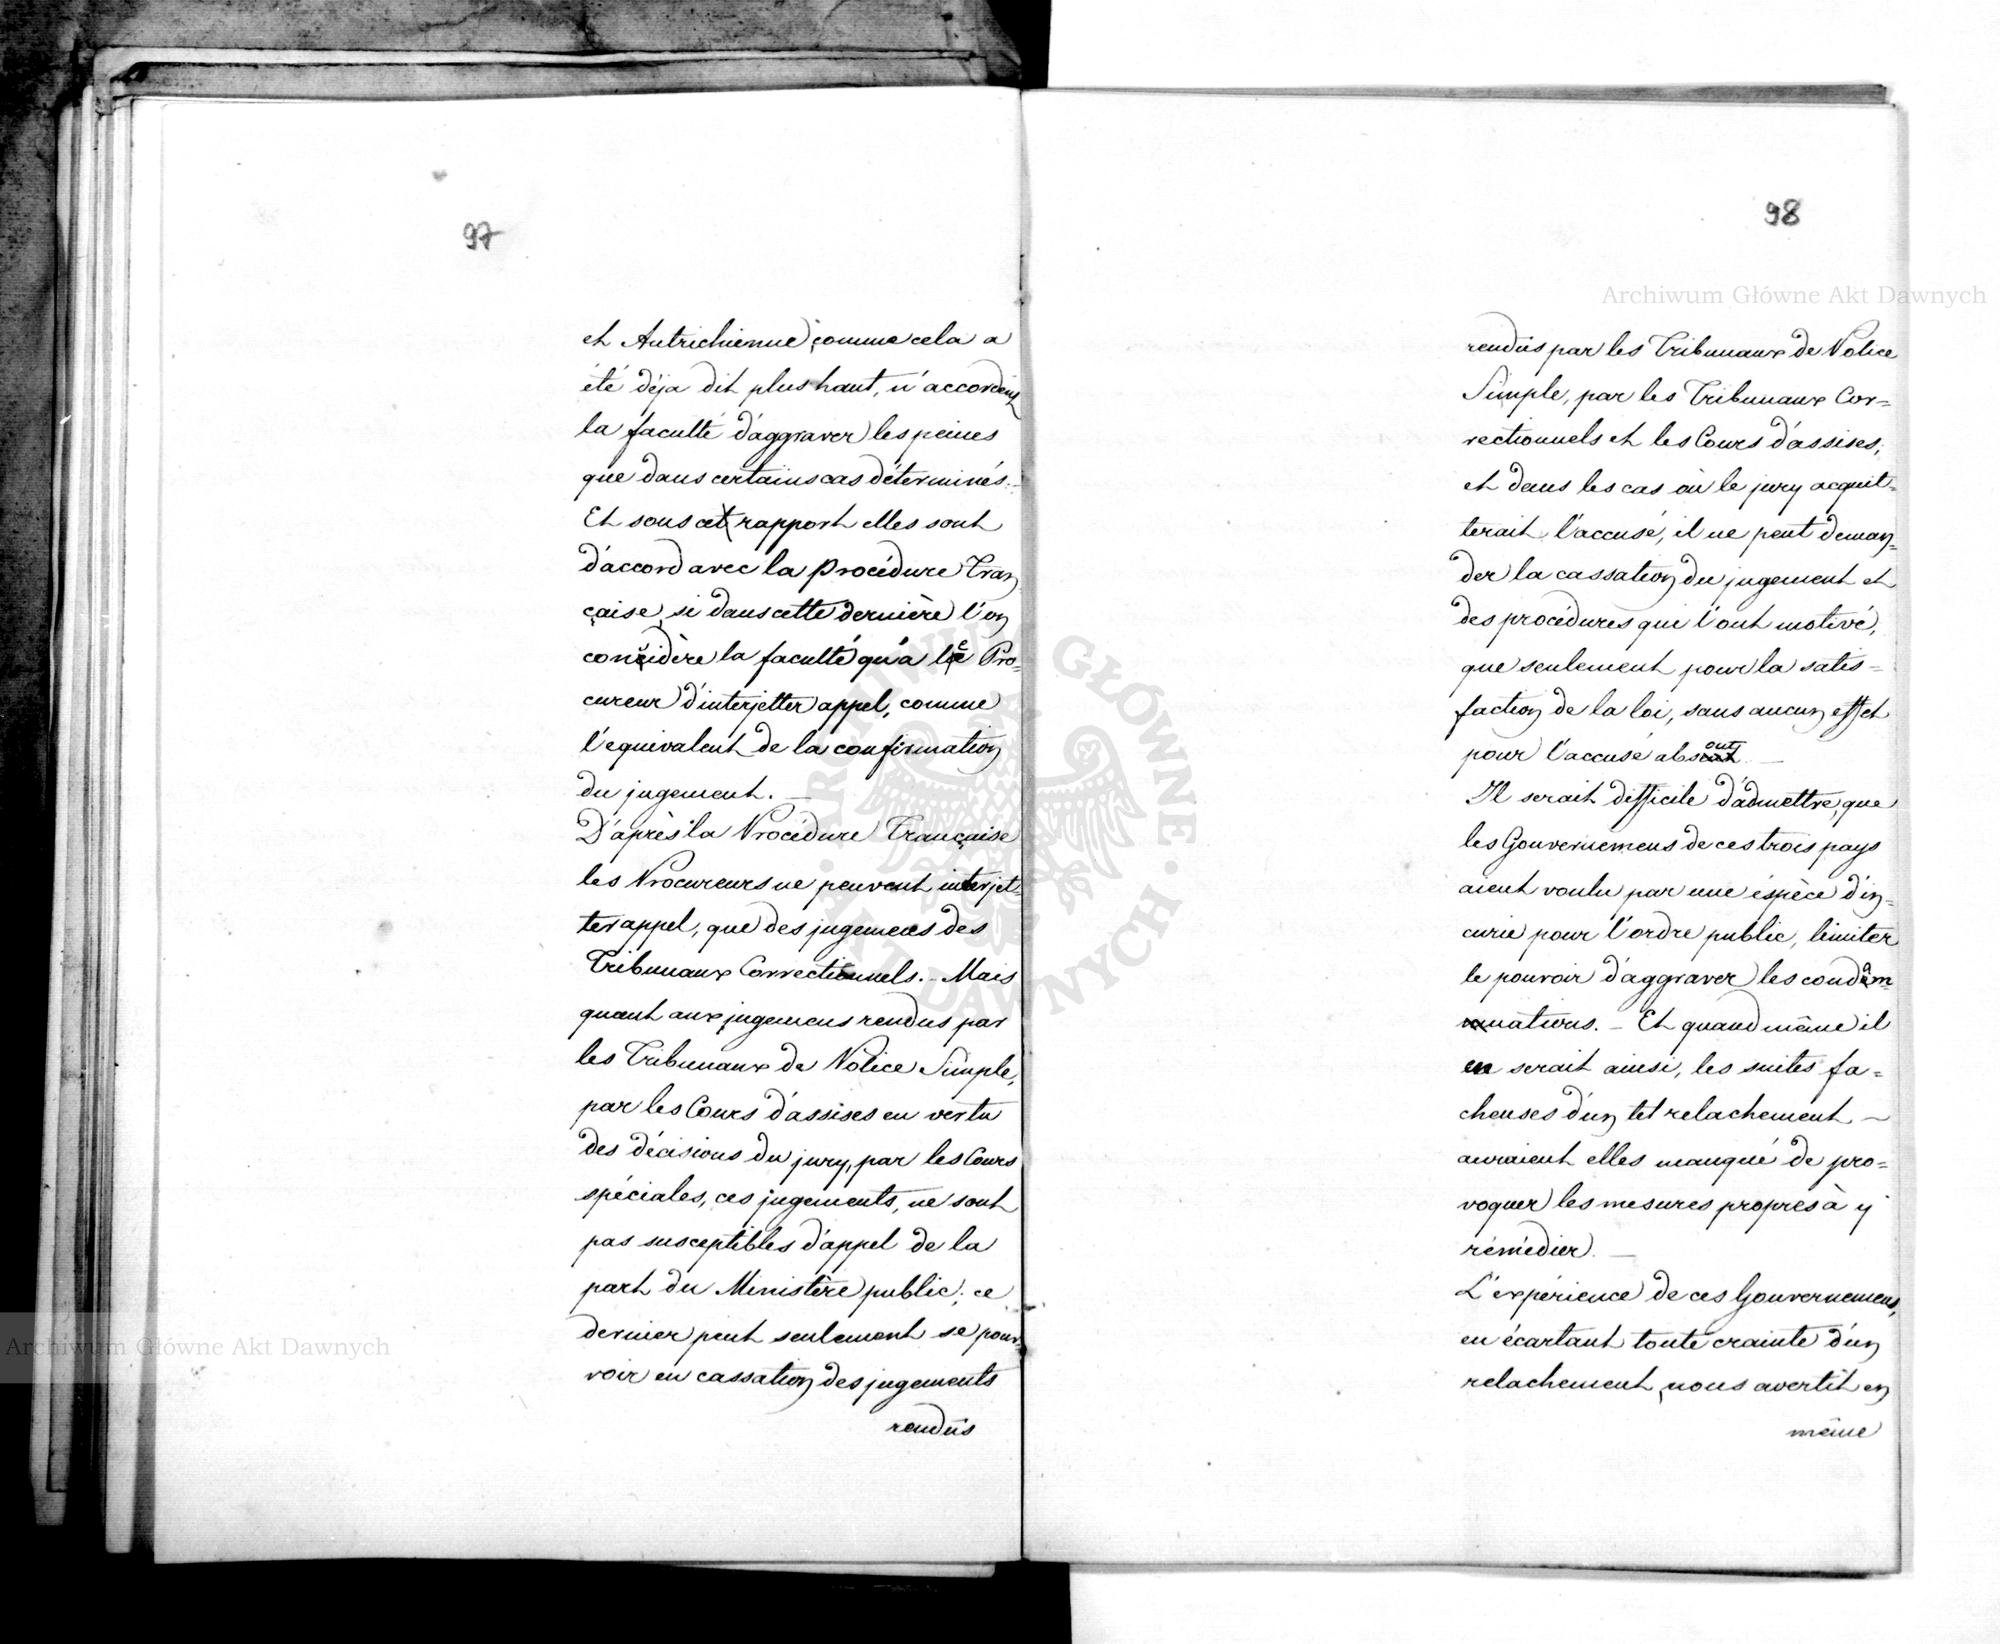 97
et Autrichienne, comme cela a
été déja dit plus haut, n'accordent
la faculté d'aggraver les peines
que dans certains cas déterminés.
Et sous cet rapport elles sont
d'accord avec la procédure Fran
çaise, si dans cette dernière l'on
considère la faculté qu'a le Pro-
cureur d'interjetter appel, comme
l'equivalent de la confirmation
du jugement. —
D'après la Procédure Française
les Procureurs ne peuvent interjet-
ter appel, que des jugemens des
Tribunaux Correctionnels. — Mais
quant aux jugemens rendus par
les Tribunaux de Police Simple,
par les Cours d'assises en vertu
des décisions du jury, par les Cours
spéciales, ces jugements, ne sont
pas susceptibles d'appel de la
part du Ministère public; ce
dernier peut seulement se pour-
voir en cassation des jugements
rendus
98
rendus par les Tribunaux de Police
Simple, par les Tribunaux Cor=
rectionnels et les Cours d'assises;
et dans les cas où le jury acquit-
terait l'accusé, il ne peut deman=
der la cassation du jugement et
des procédures qui l'ont motivé,
que seulement pour la satis=
faction de la loi, sans aucun effet
pour l'accusé absout. —
Il serait difficile d'admettre, que
les Gouvernemens de ces trois pays
aient voulu par une éspèce d'in=
curie pour l'ordre public, limiter
le pouvoir d'aggraver les condam=
nations. — Et quand même il
en serait ainsi, les suites fa=
cheuses d'un tel relachement —
auraient elles manqué de pro=
voquer les mesures propres à y
rémédier. —
L'expérience de ces Gouvernemens,
en écartant toute crainte d'un
relachement, nous avertit en
même
Archiwum Główne Akt Dawnych
Archiwum Główne Akt Dawnych
ARCHIWUM GŁÓWNE AKT DAWNYCH